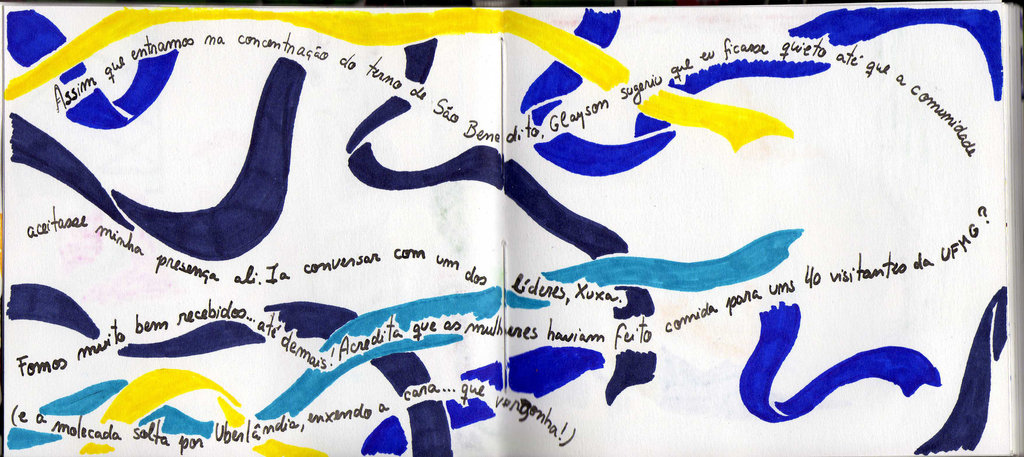 Assim que entramos na concentração do terno de São Benedito, Glayson sugeriu que eu ficasse quieto até que a comunidade
aceitasse minha presença ali. Ia conversar com um dos líderes, Xuxa.
Fomos muito bem recebidos... até demais! Acredita que as mulheres haviam feito comida para uns 40 visitantes da UFMG?
(e a molecada solta por Uberlândia, enxendo a cara... que vergonha!)